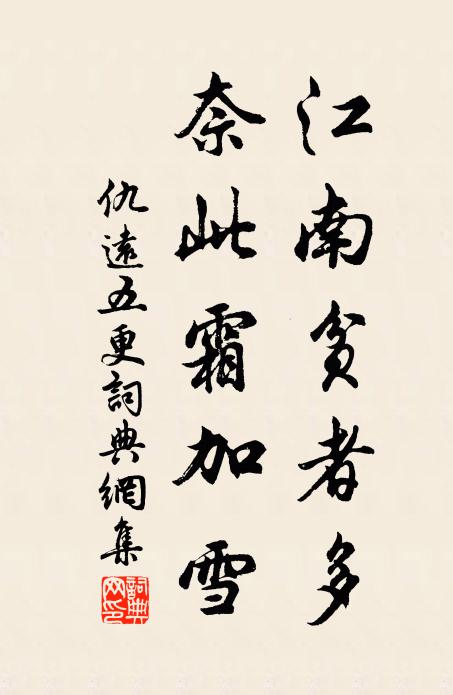 江南貧者多
奈此霜加雪
仇遠五更詞典網集
詞典網印